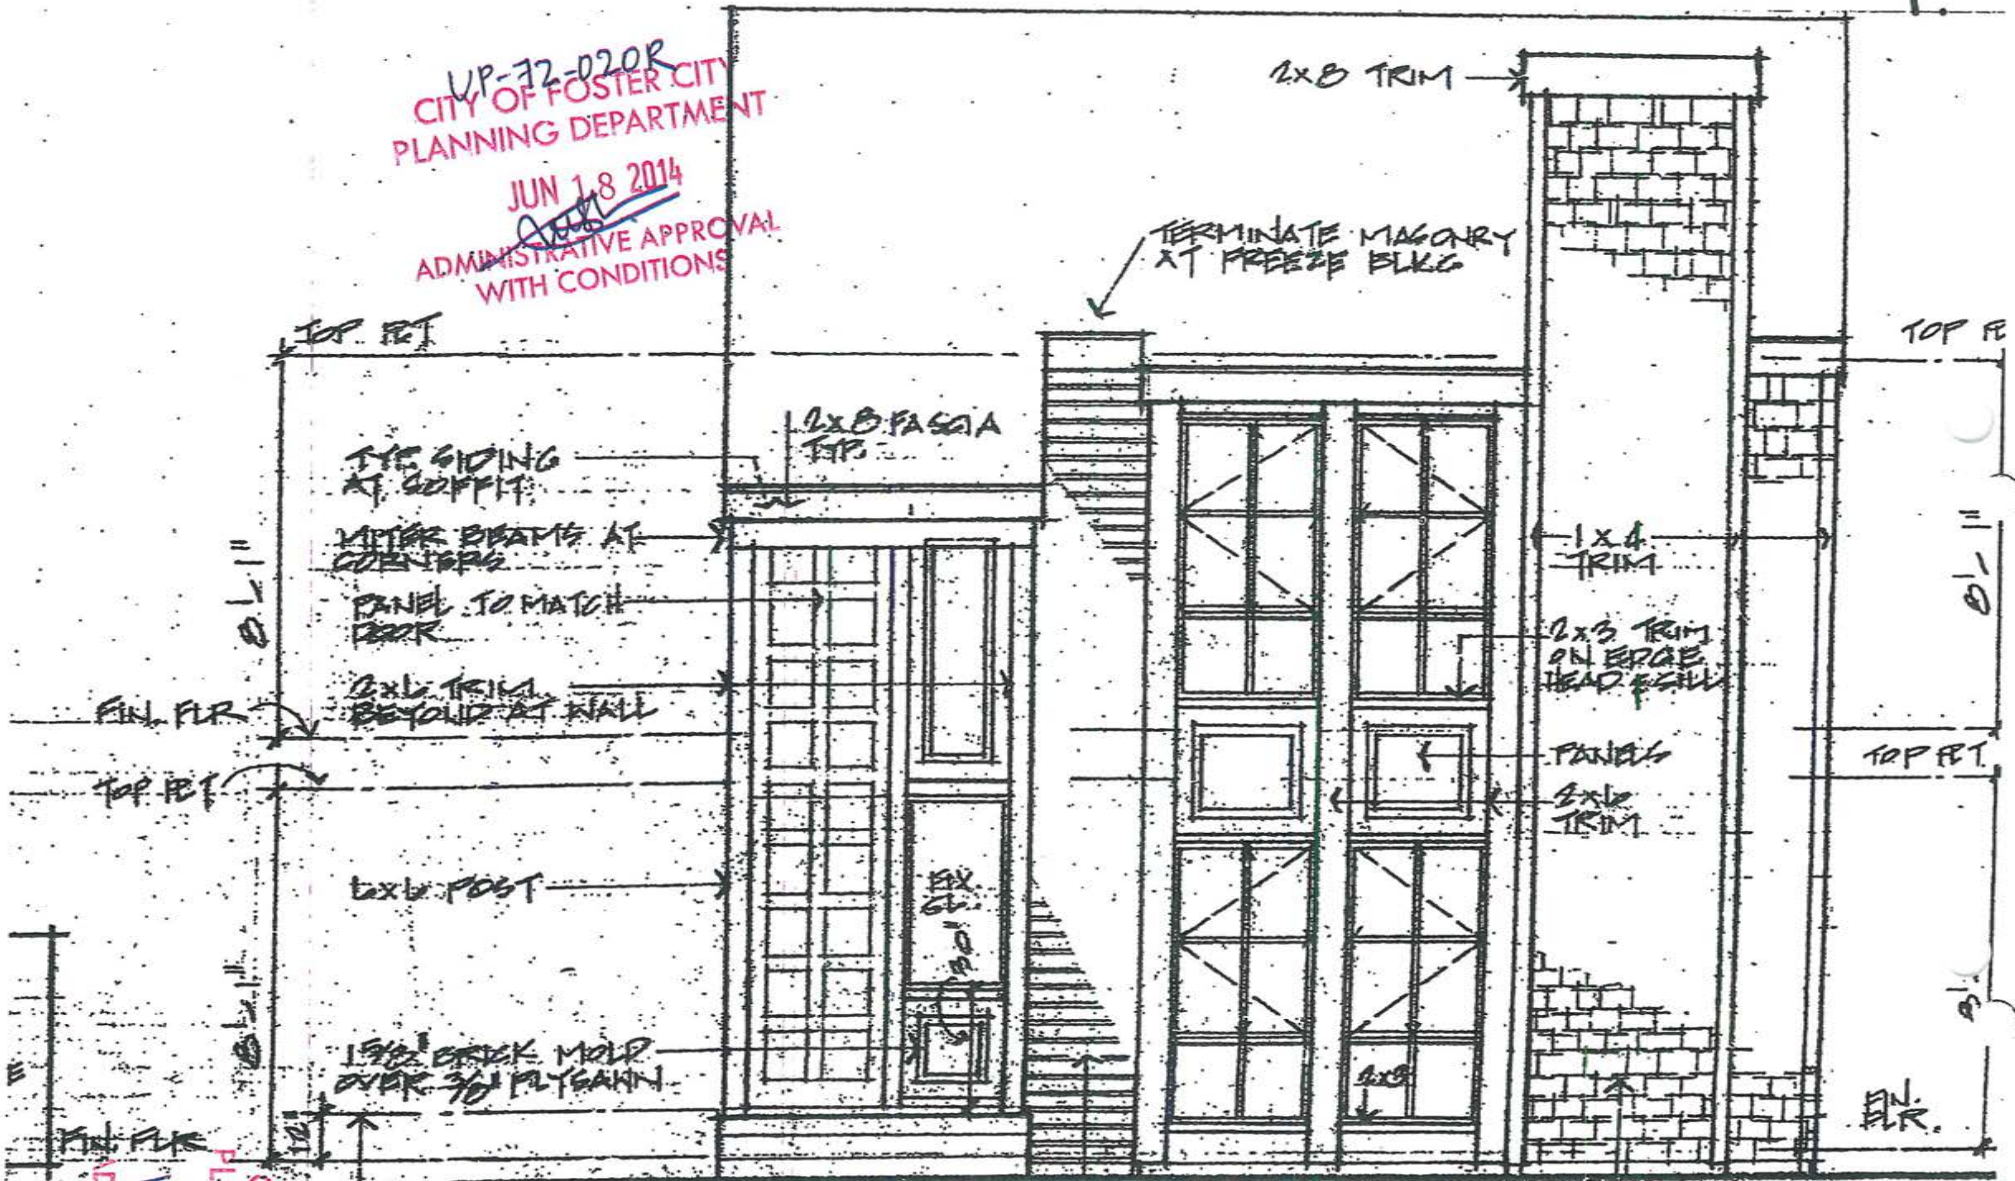 UP-72-020R
CITY OF FOSTER CITY
PLANNING DEPARTMENT
JUN 18 2014
ADMINISTRATIVE APPROVAL
WITH CONDITIONS
2x8 TRIM
TERMINATE MASONRY
AT FREEZE BLKG
TOP PET
TOP PE
2x8 FASCIA
TYP.
TYP. SIDING
AT SOFFIT
MITER BEAMS AT
CORNERS
PANEL TO MATCH
DOOR
2x6 TRIM
BEYOND AT WALL
8'-1"
FIN. FLR
TOP PET
6x6 POST
FIX
GL.
30"
1 5/8" BRICK MOLD
OVER 3/8" PLYSAWN
8'-1"
12"
FIN FLR
E
1x4
TRIM
2x3 TRIM
ON EDGE
HEAD & SILL
PANELS
2x6
TRIM
2x3
8'-1"
TOP PET
8'-
FIN.
FLR.
PL